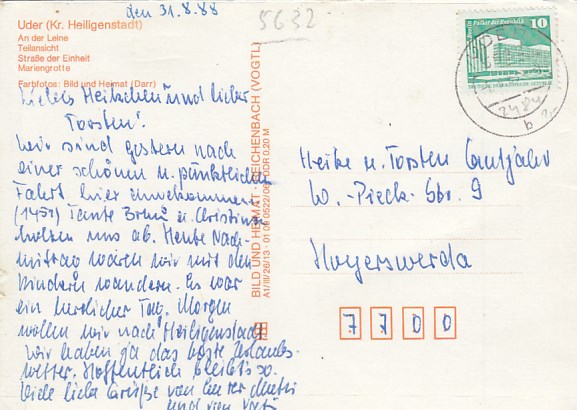 den 31.8.88
5632
Uder (Kr. Heiligenstadt)
An der Leine
Teilansicht
Straße der Einheit
Mariengrotte
Farbfotos: Bild und Heimat (Darr)
Liebes Heikchen und lieber
Torsten!
Wir sind gestern nach
einer schönen u. pünktlichen
Fahrt hier angekommen
Tante u. Christine
holten uns ab. Heute Nach-
mittag waren wir mit den
Kindern wandern. Es war
ein herrlicher Tag. Morgen
wollen wir nach Heiligenstadt
Wir haben ja das beste Urlaubs-
wetter. Hoffentlich bleibt's so.
Viele liebe Grüße von Eurer Mutti
und von Vati
BILD UND HEIMAT REICHENBACH (VOGTL)
A1/III/26/13 01 09 0522/06 DDR 0,20 M
10
Palast der Republik
Heike u. Torsten
W.-Pieck-Str. 9
Hoyerswerda
7 7 0 0